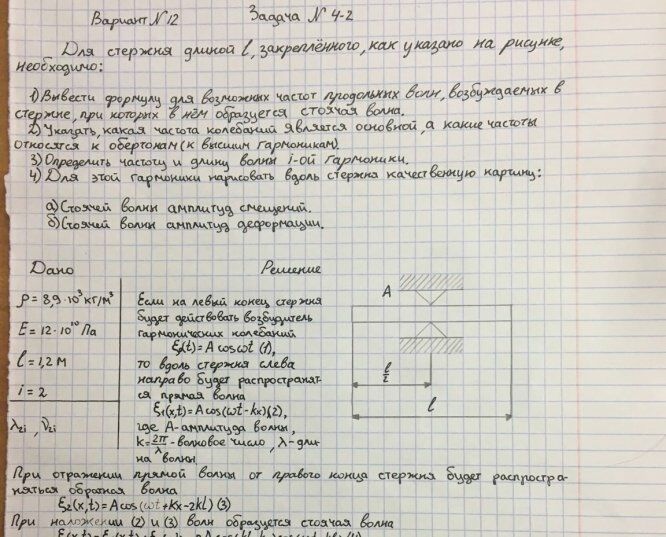 Вариант N 12 Задача N 4-2
Для стержня длиной l, закреплённого, как указано на рисунке,
необходимо:
1) Вывести формулу для возможных частот продольных волн, возбуждаемых в
стержне, при которых в нём образуется стоячая волна.
2) Указать, какая частота колебаний является основной, а какие частоты
относятся к обертонам (к высшим гармоникам).
3) Определить частоту и длину волны i-ой гармоники.
4) Для этой гармоники нарисовать вдоль стержня качественную картину:
а) Стоячей волны амплитуд смещений.
б) Стоячей волны амплитуд деформации.
Дано Решение
ρ = 8,9·10³ кг/м³
E = 12·10¹⁰ Па
l = 1,2 м
i = 2
λ₂i, ν₂i
Если на левый конец стержня
будет действовать возбудитель
гармонических колебаний
ξ(t) = A cos ωt (1),
то вдоль стержня слева
направо будет распространят-
ся прямая волна
ξ₁(x,t) = A cos(ωt - kx) (2),
где A - амплитуда волны,
k = 2π/λ - волновое число, λ - дли-
на волны
A
l/2
l
При отражении прямой волны от правого конца стержня будет распростра-
няться обратная волна
ξ₂(x,t) = A cos(ωt + kx - 2kl) (3)
При наложении (2) и (3) волн образуется стоячая волна